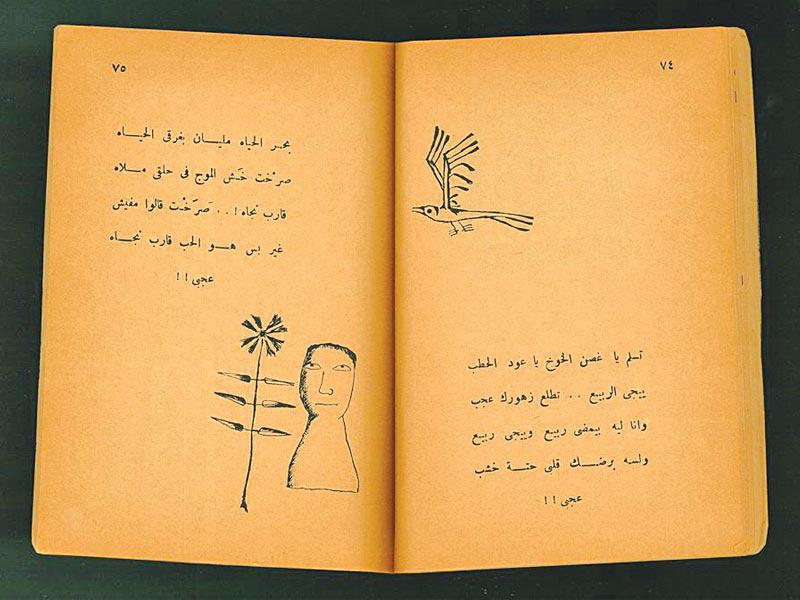 ٧٤
تسلم يا غصن الخوخ يا عود الحطب
ييجى الربيع .. تطلع زهورك عجب
وانا ليه بيمضى ربيع وييجى ربيع
ولسه برضك قلبى حتة خشب
عجبى !!
٧٥
بحر الحياه مليان بغرقى الحياه
صرخت خَش الموج فى حلقى ملاه
قارب نجاه ! .. صرخت قالوا مفيش
غير بس هو الحب قارب نجاه
عجبى !!